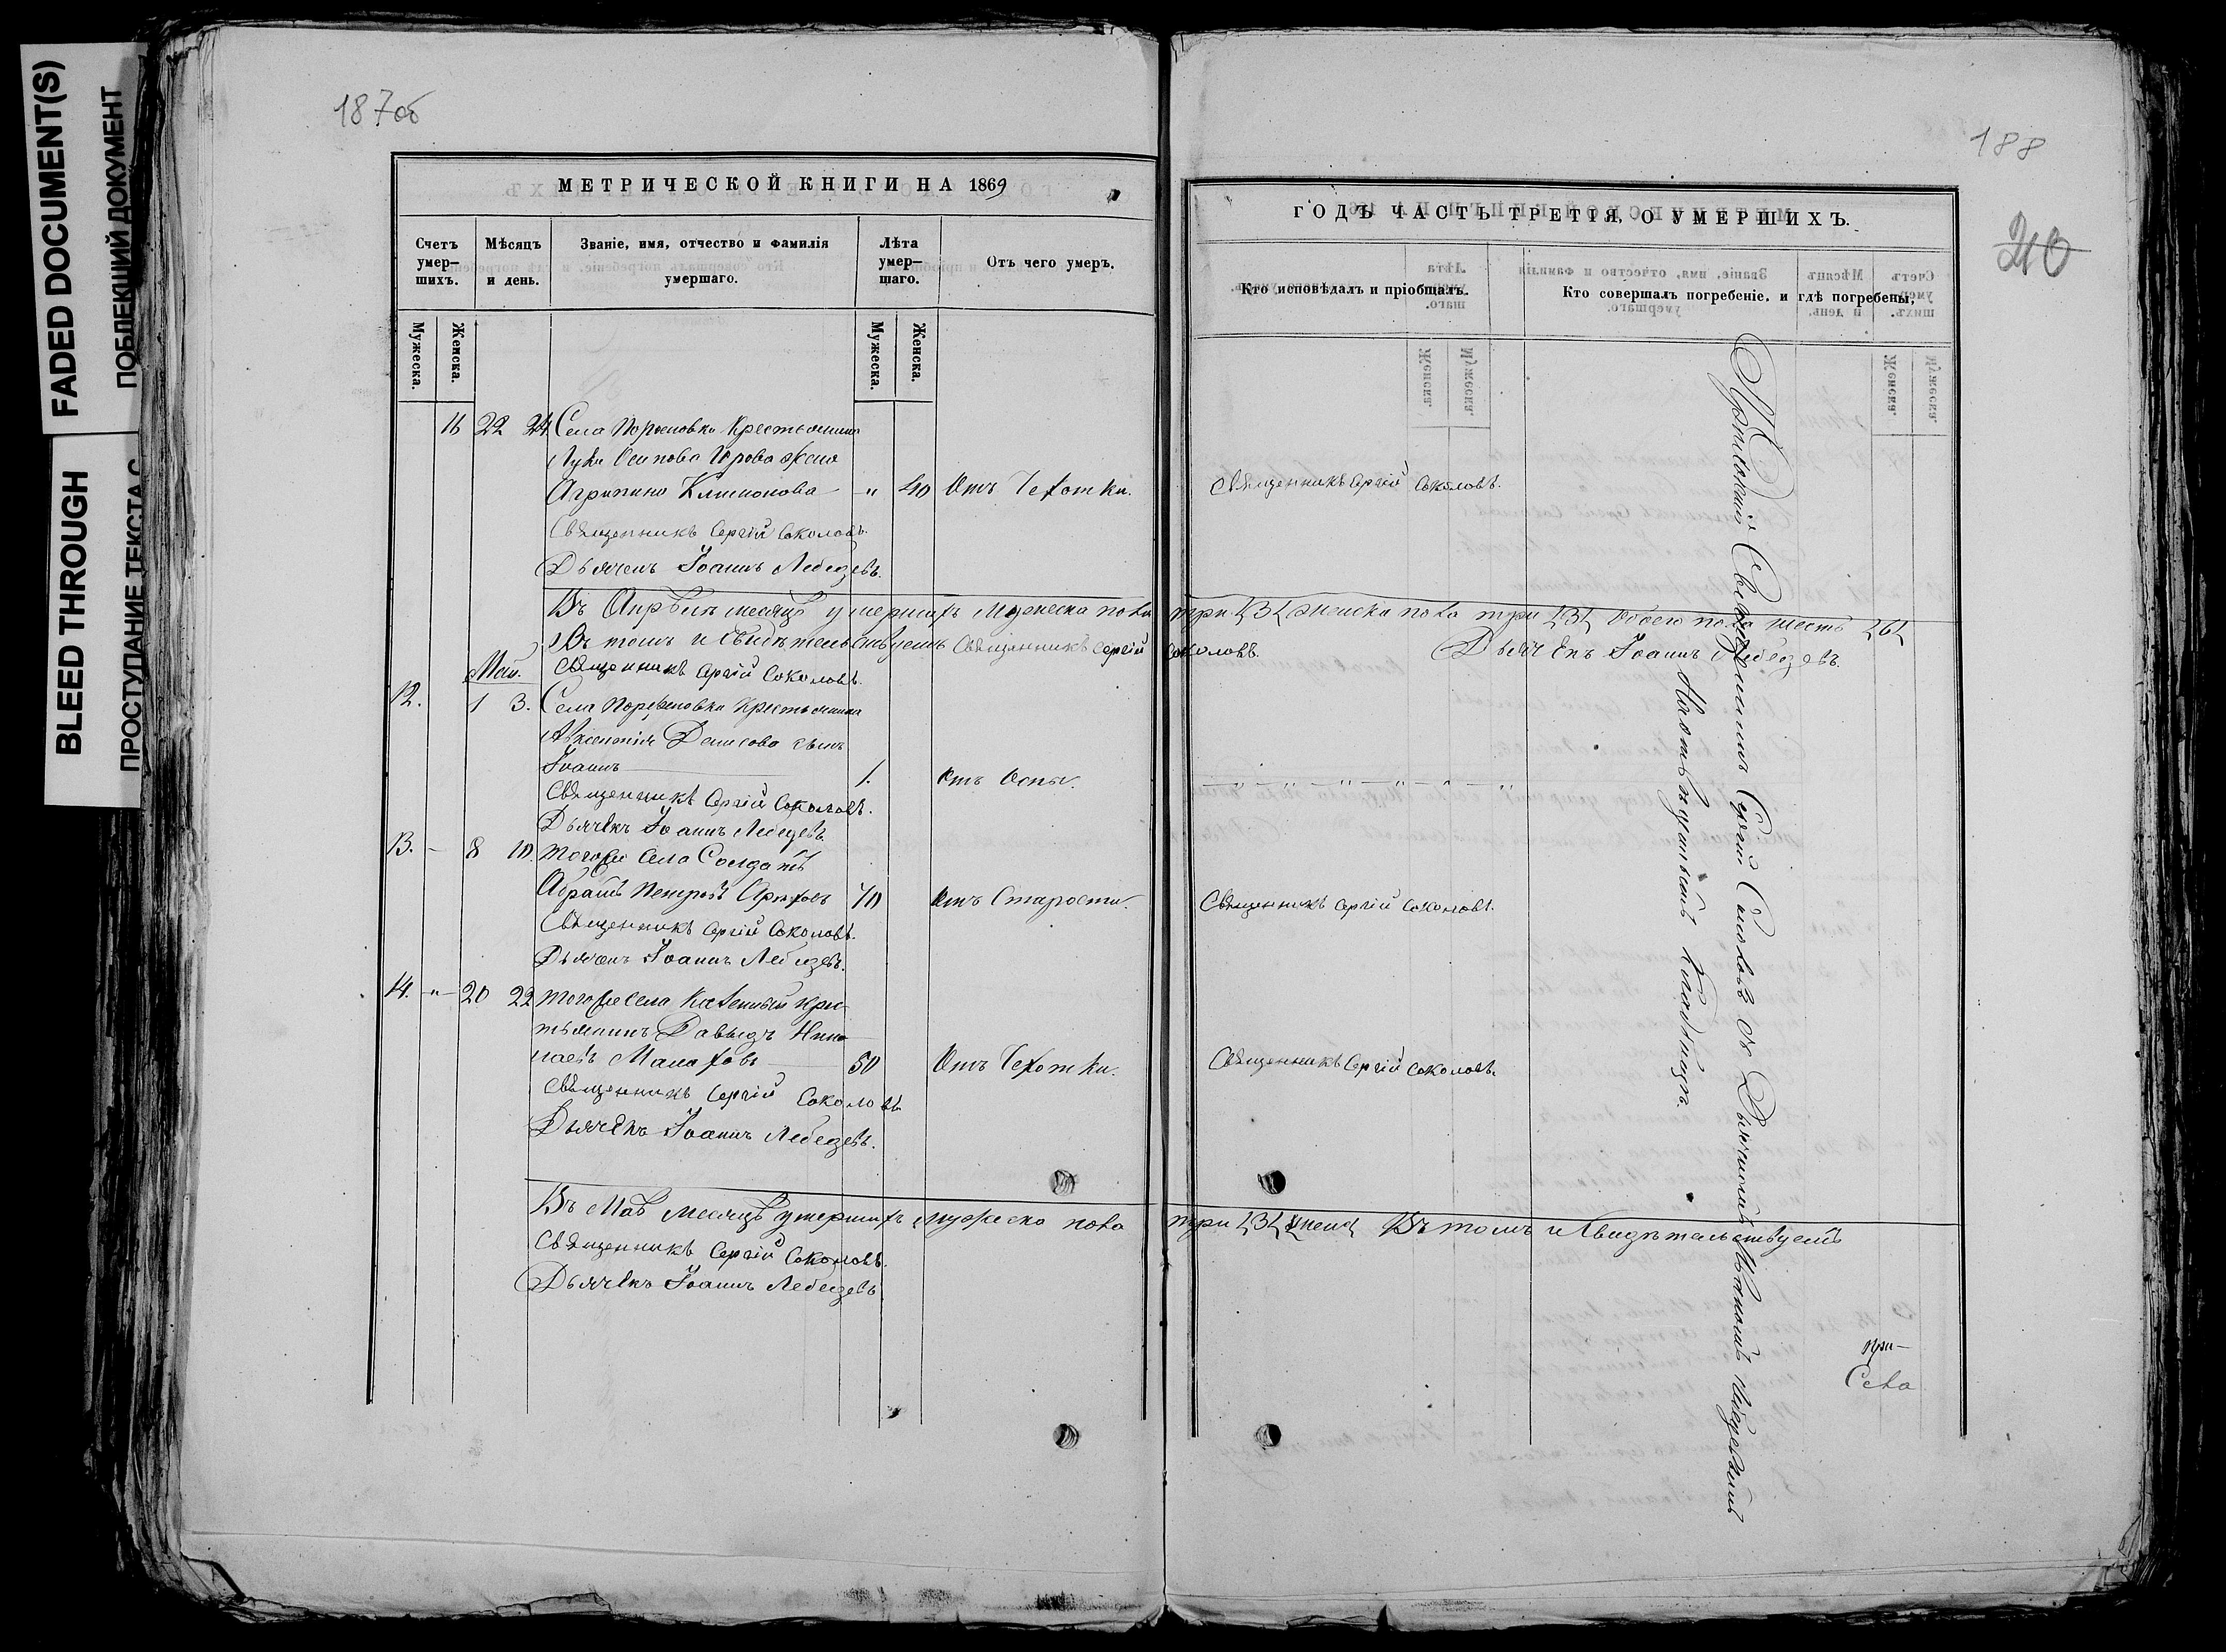 FADED DOCUMENT(S)
ПОБЛЕКШИЙ ДОКУМЕНТ
BLEED THROUGH
ПРОСТУПАНИЕ ТЕКСТА С
187об
МЕТРИЧЕСКОЙ КНИГИ НА 1869
Счетъ умер-шихъ.
Мѣсяцъ и день.
Званіе, имя, отчество и фамилія умершаго.
Лѣта умер-шаго.
Отъ чего умеръ.
Мужеска.
Женска.
Мужеска.
Женска.
16 22 24 Села Крестьянина
Луки Осипова жена
Агрипина Климонова " 40 Отъ Чехотки.
Священникъ Сергій Соколовъ.
Дьячекъ Іоаннъ Лебедевъ.
Въ Апрѣлѣ месяцѣ умершихъ мужеска пола
Въ томъ и свидѣтельствуемъ Священникъ Сергій
Май. Священникъ Сергій Соколовъ.
12. 1 3. Села Крестьянина
Авксентія Денисова сынъ
Іоаннъ 1. Отъ Оспы.
Священникъ Сергій Соколовъ.
Дьячекъ Іоаннъ Лебедевъ.
13. - 8 10. Тогоже села Солдатъ
Абрамъ Петровъ 70 Отъ Старости.
Священникъ Сергій Соколовъ.
Дьячекъ Іоаннъ Лебедевъ.
14. - " - 20 22 Тогоже села Казенный крес-
тьянинъ Давыдъ Нико-
лаевъ Малаховъ 50 Отъ Чехотки.
Священникъ Сергій Соколовъ
Дьячекъ Іоаннъ Лебедевъ.
Въ Маѣ месяцѣ умершихъ мужеска пола
Священникъ Сергій Соколовъ.
Дьячекъ Іоаннъ Лебедевъ
188
210
ГОДЪ ЧАСТЬ ТРЕТІЯ, О УМЕРШИХЪ.
Кто исповѣдалъ и пріобщалъ.
Кто совершалъ погребеніе, и гдѣ погребены,
Священникъ Сергій Соколовъ.
три 3 женска пола три 3 обоего пола шесть 6
Соколовъ. Дьячекъ Іоаннъ Лебедевъ.
Священникъ Сергій Соколовъ.
Священникъ Сергій Соколовъ.
три 3 Въ томъ и свидѣтельствуемъ
Приходскій Священникъ Сергій Соколовъ съ Дьячкомъ Іоанномъ Лебедевымъ
На кладбищѣ.
при-
Села